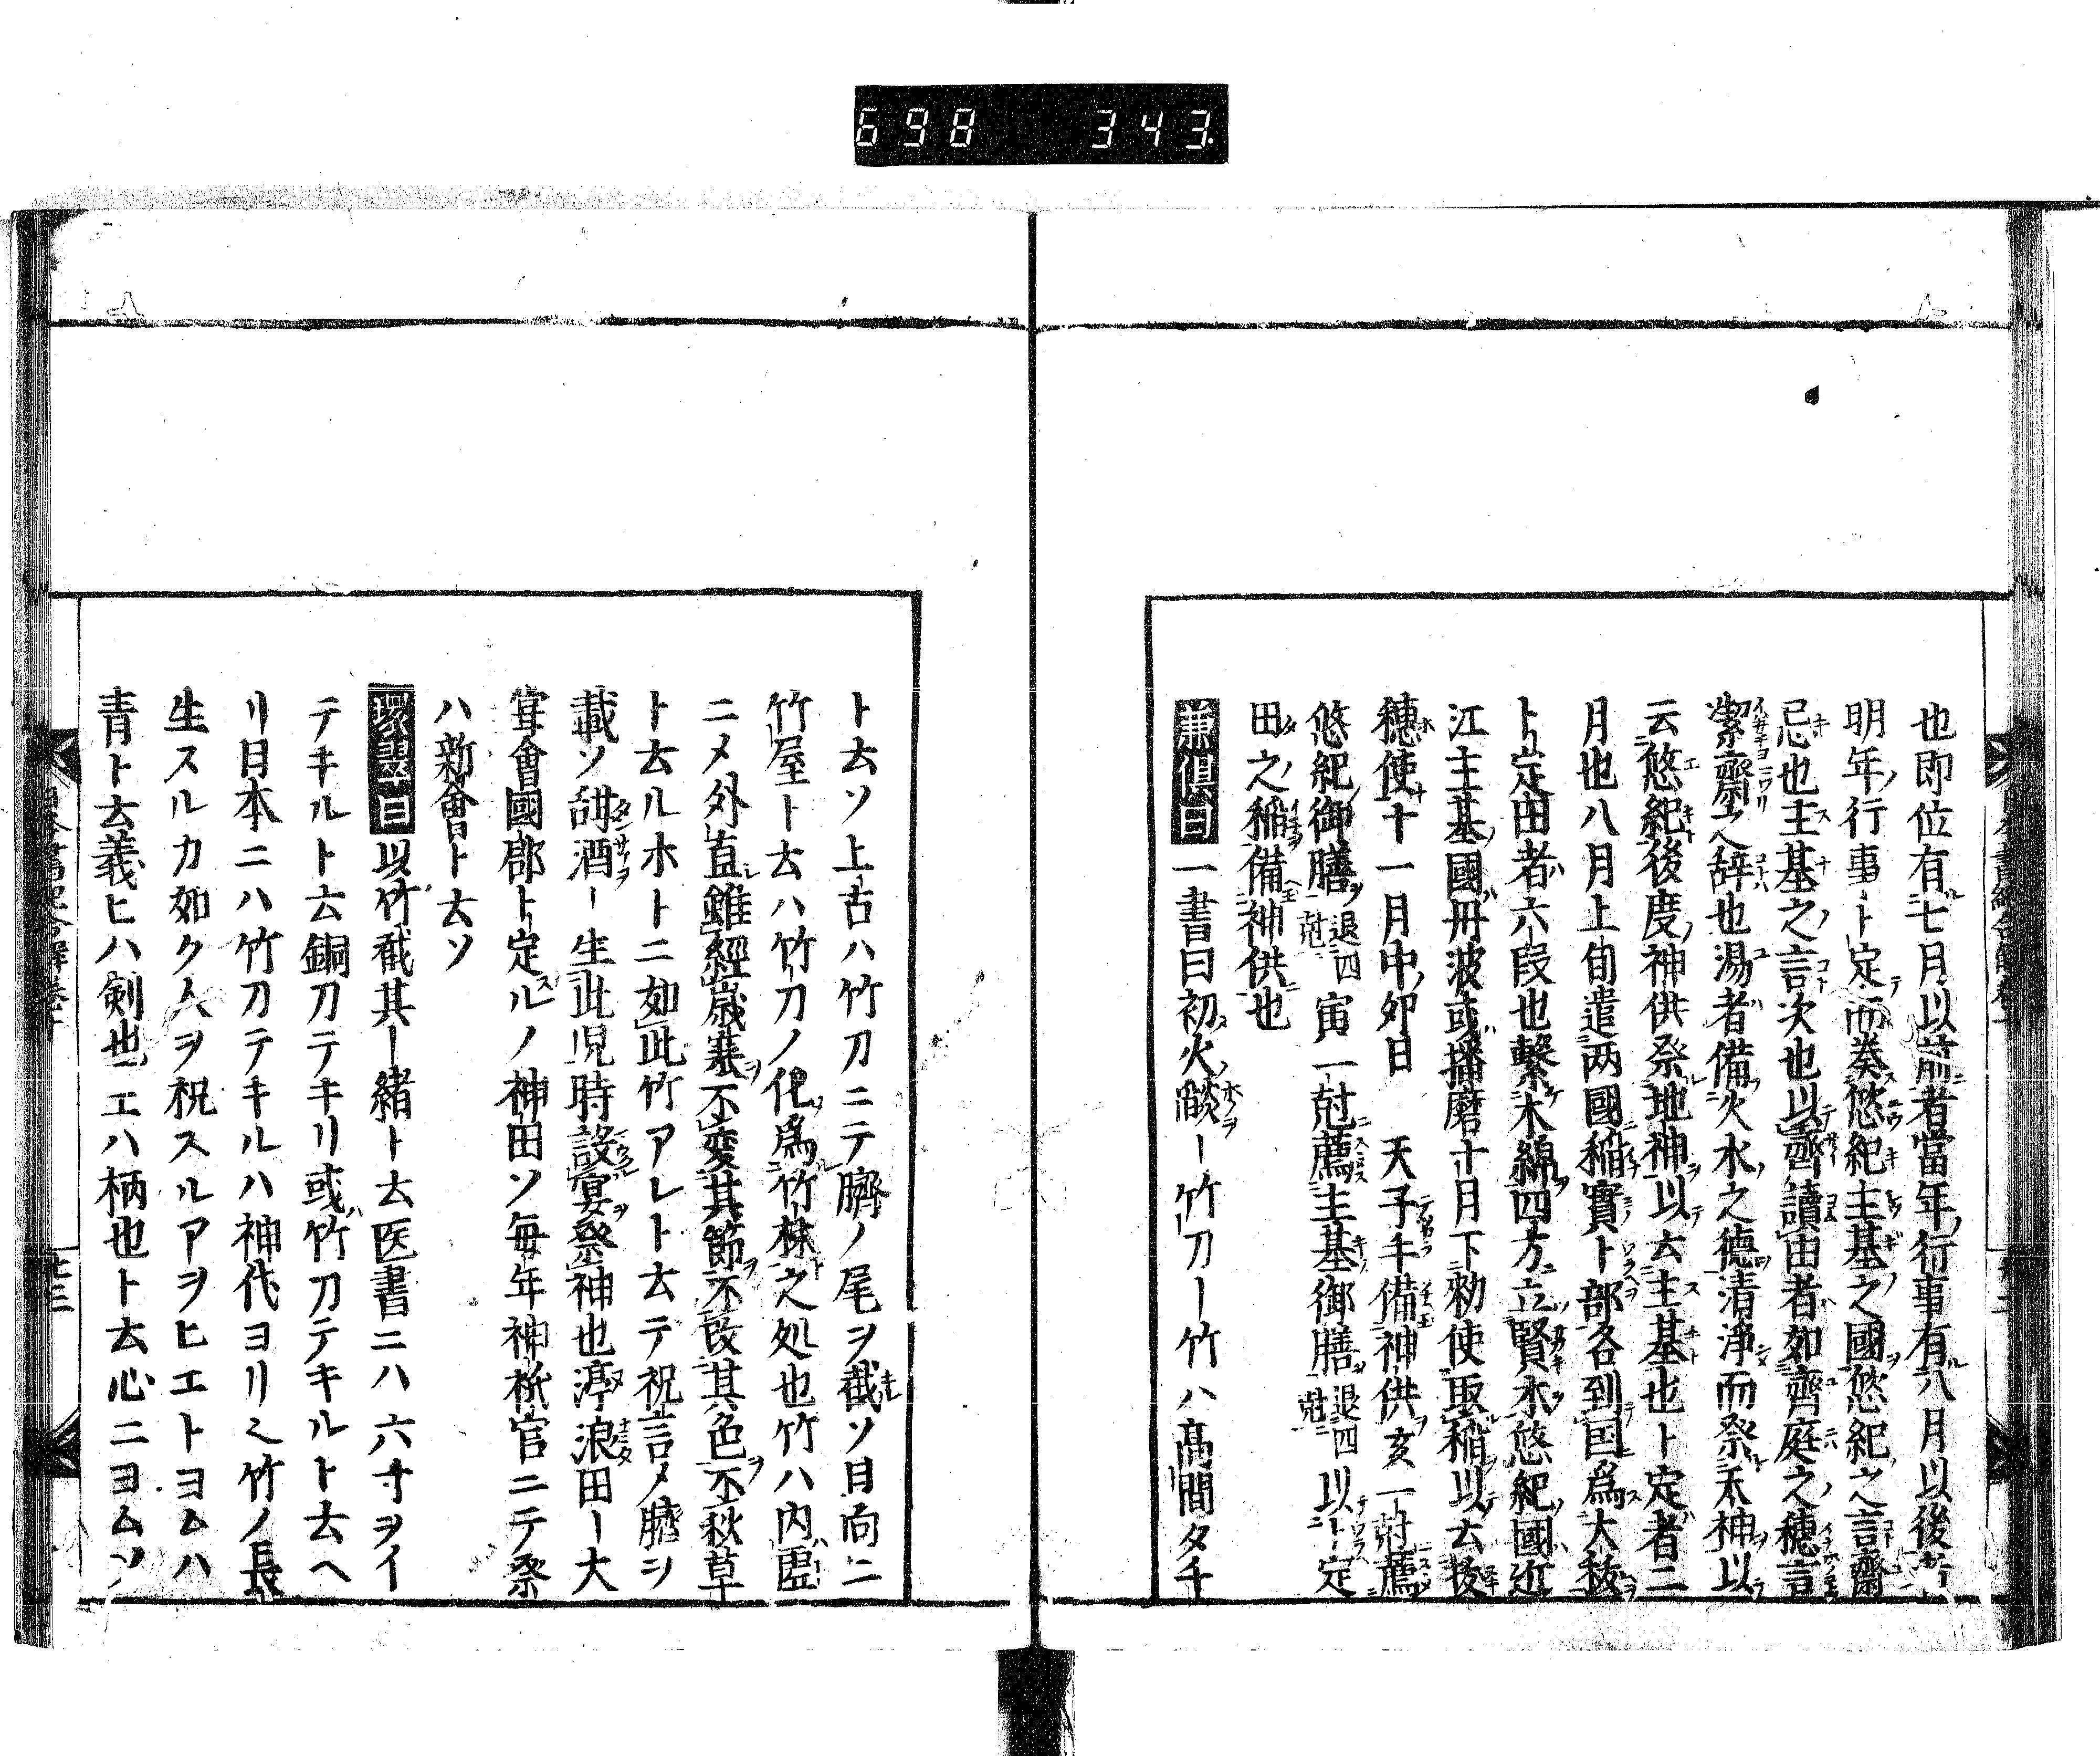 698 343
也即位有七月以前者當年行事有八月以後者
明年行事ト定而奏悠紀主基之國悠紀之言齋
忌也主基之言次也以齊讀由者如齊庭之穗言
潔齋之辞也湯者備火水之德清淨而祭天神以
云悠紀後度神供祭地神以去主基也ト定者二
月也八月上旬遣两國稲實ト部各到国爲大秡
ト定田者六段也繋木綿四方立賢木悠紀國近
江主基國丹波或播磨十月下勅使取稲以去拔
穂使十一月中夘日 天子手備神供亥一尅薦
悠紀御膳退四尅寅一尅薦主基御膳退四尅以ト定
田之稲備神供也
兼倶曰一書曰初火燄ー竹刀ー竹ハ高間タ千
ト去ソ上古ハ竹刀ニテ臍ノ尾ヲ截ソ日向ニ
竹屋ト去ハ竹刀ノ化爲竹林之処也竹ハ内虚
ニメ外直雖經歳寒不変其節不改其色不秋草
ト去ルホトニ如此竹アレト去テ祝言メ臍ヲ
載ソ甜酒ー生此児時設宴祭神也渟浪田ー大
甞會國郡ト定ルノ神田ソ毎年神祇官ニテ祭
ハ新甞ト去ソ
環翠曰以竹截其ー緒ト去医書ニハ六寸ヲイ
テキルト去銅刀テキリ或竹刀テキルト去ヘ
リ日本ニハ竹刀テキルハ神代ヨリ之竹ノ長
生スルカ如ク人ヲ祝スルアヲヒエトヨムハ
青ト去義ヒハ剣也エハ柄也ト去心ニヨムソ